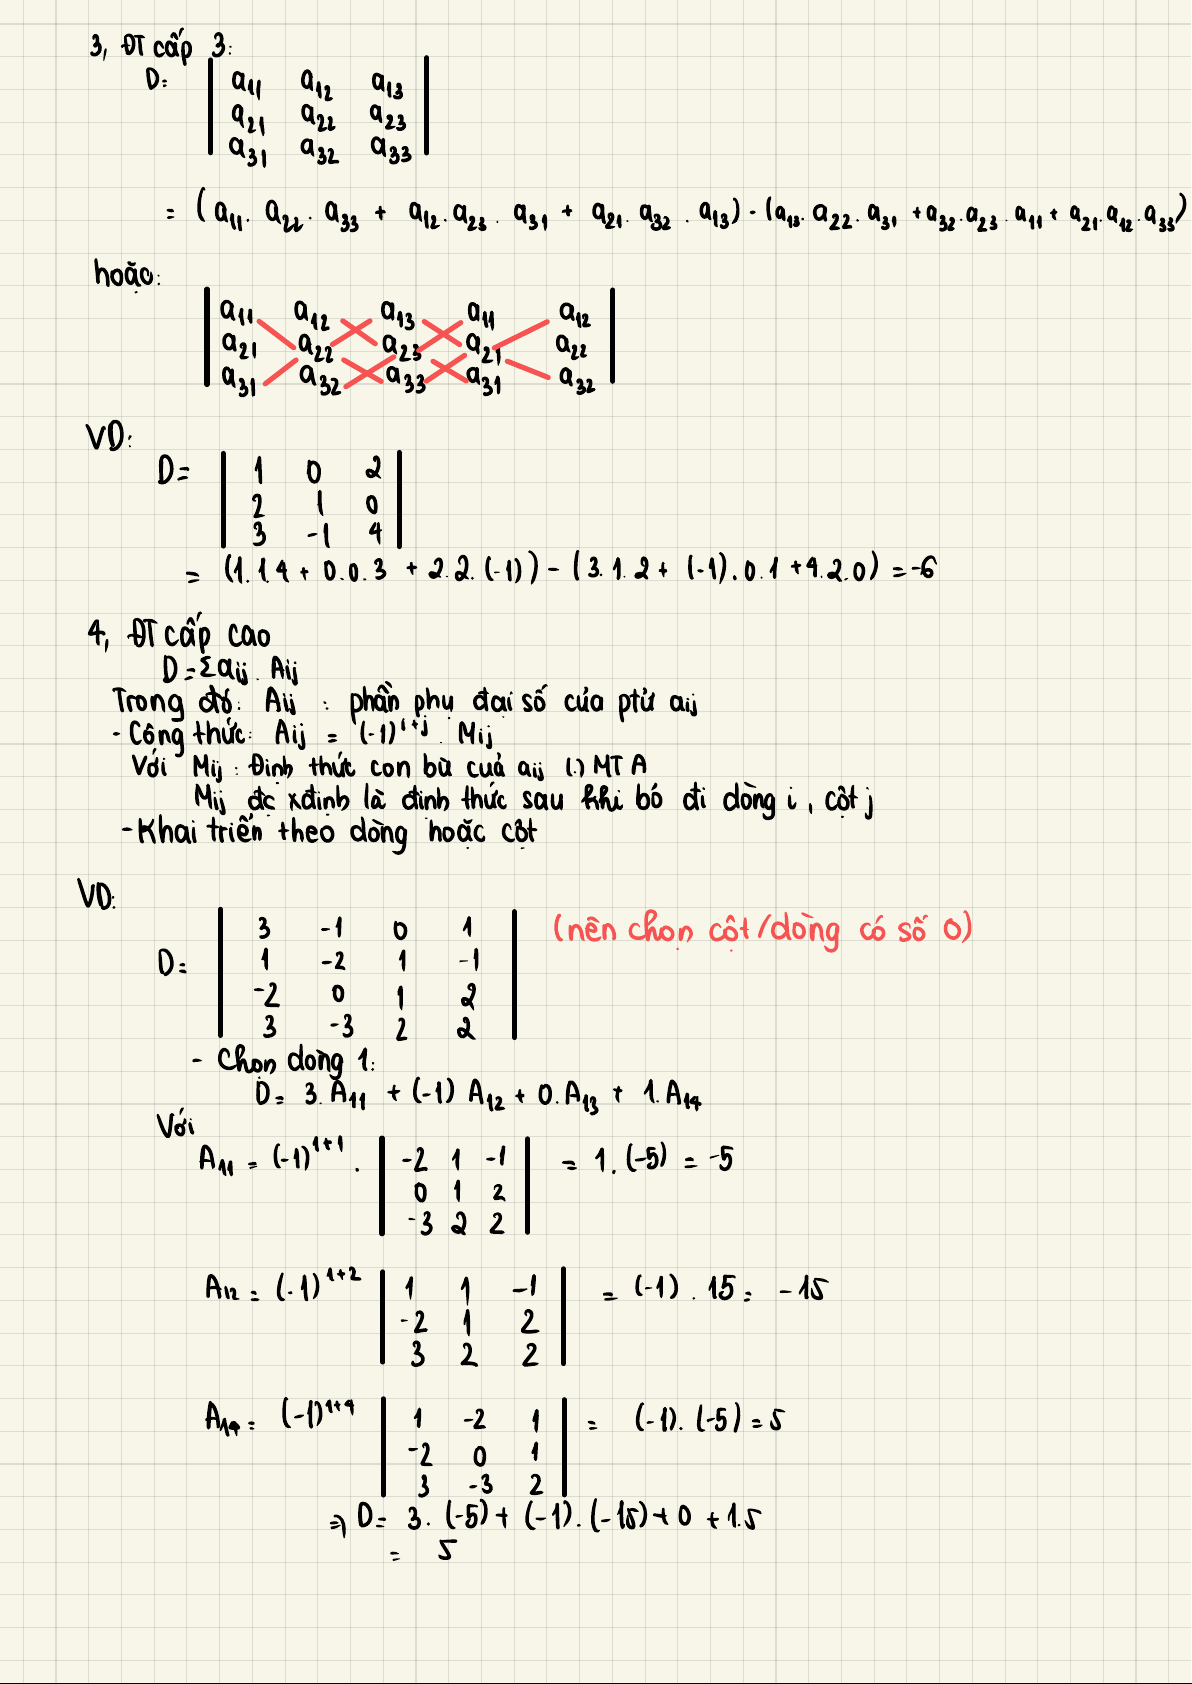 3, ĐT cấp 3:
D: | a11 a12 a13 |
| a21 a22 a23 |
| a31 a32 a33 |
= (a11. a22. a33 + a12. a23. a31 + a21. a32. a13) - (a13. a22. a31 + a32. a23. a11 + a21. a12. a33)
hoặc:
| a11 a12 a13 a11 a12 |
| a21 a22 a23 a21 a22 |
| a31 a32 a33 a31 a32 |
VD:
D= | 1 0 2 |
| 2 1 0 |
| 3 -1 4 |
= (1.1.4 + 0.0.3 + 2.2.(-1)) - (3.1.2 + (-1).0.1 + 4.2.0) = -6
4, ĐT cấp cao
D = Σaij. Aij
Trong đó: Aij : phần phụ đại số của ptử aij
- Công thức: Aij = (-1)^i+j. Mij
Với Mij : Định thức con bù cuả aij (.) MT A
Mij đc xđịnh là định thức sau khi bỏ đi dòng i, cột j
- Khai triển theo dòng hoặc cột
VD:
(nên chọn cột/dòng có số 0)
| 3 -1 0 1 |
D= | 1 -2 1 -1 |
| -2 0 1 2 |
| 3 -3 2 2 |
- Chọn dòng 1:
D= 3. A11 + (-1) A12 + 0. A13 + 1. A14
Với
A11 = (-1)^1+1. | -2 1 -1 | = 1. (-5) = -5
| 0 1 2 |
| -3 2 2 |
A12 = (-1)^1+2 | 1 1 -1 | = (-1) . 15 = -15
| -2 1 2 |
| 3 2 2 |
A14 = (-1)^1+4 | 1 -2 1 | = (-1). (-5) = 5
| -2 0 1 |
| 3 -3 2 |
⇒ D= 3. (-5) + (-1). (-15) + 0 + 1.5
= 5